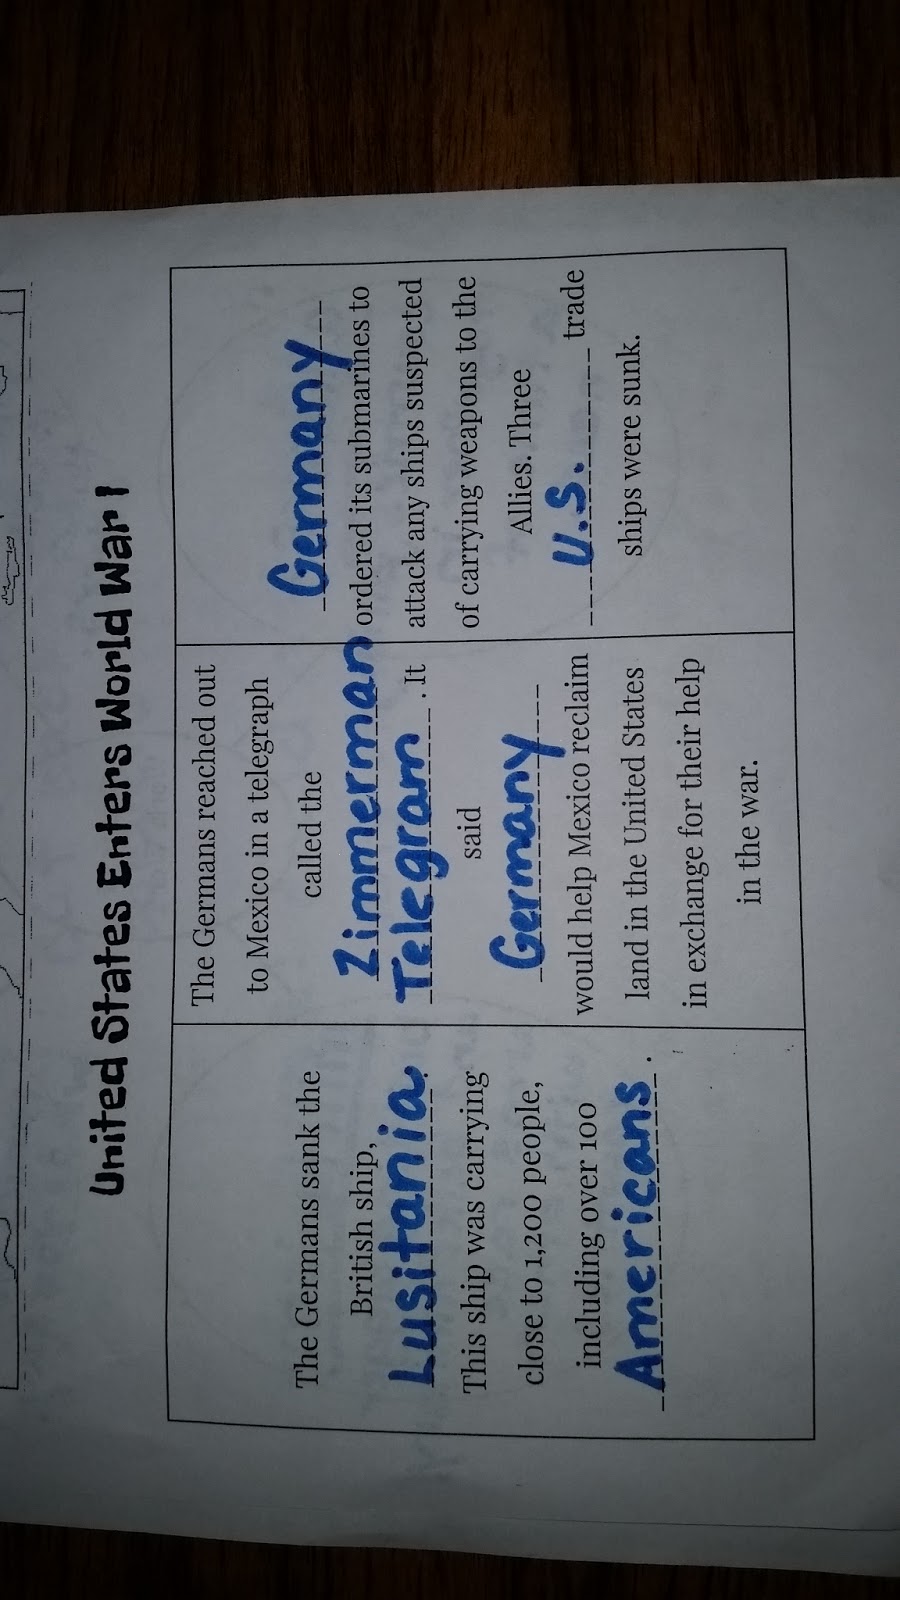 United States Enters World War I
The Germans sank the
British ship,
Lusitania.
This ship was carrying
close to 1,200 people,
including over 100
Americans.
The Germans reached out
to Mexico in a telegraph
called the
Zimmerman
Telegram. It
said
Germany
would help Mexico reclaim
land in the United States
in exchange for their help
in the war.
Germany
ordered its submarines to
attack any ships suspected
of carrying weapons to the
Allies. Three
U.S. trade
ships were sunk.